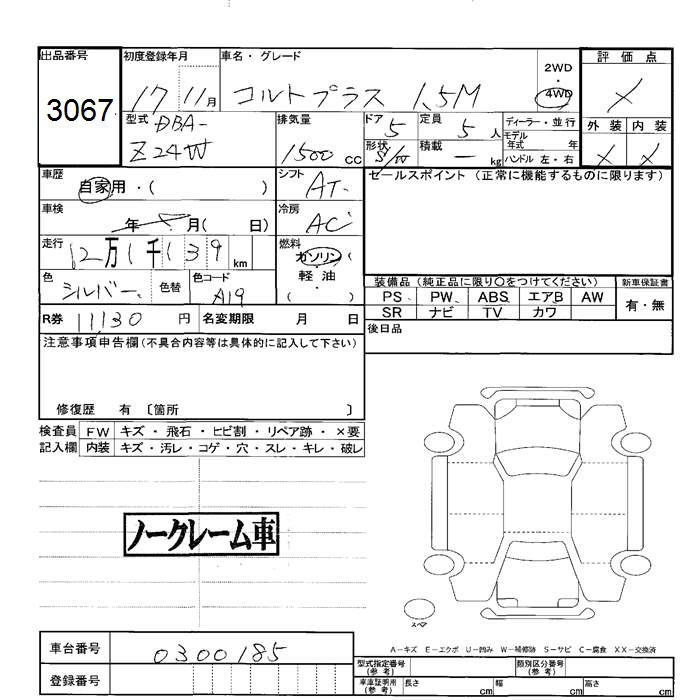 出品番号 初度登録年月 車名・グレード 2WD ・ 4WD 評価点
3067 17 11月 コルトプラス 1.5M
型式 DBA- 排気量 ドア 5 定員 5人 ディーラー・並行 外装 内装
Z24W 1500cc 形状 S/W 積載 ー kg モデル年式 年
ハンドル 左・右
車歴 自家用・( ) シフト AT セールスポイント (正常に機能するものに限ります)
車検 年 月( 日) 冷房 AC
走行 12万1千139km 燃料 ガソリン(
色 シルバー 色替 色コード A19 軽・油 ( )
装備品 (純正品に限り○をつけてください) 新車保証書
PS PW ABS エアB AW 有・無
SR ナビ TV カワ
R券 11130円 名変期限 月 日 後日品
注意事項申告欄(不具合内容等は具体的に記入して下さい)
修復歴 有 〔箇所 〕
検査員 FW キズ・飛石・ヒビ割・リペア跡・×要
記入欄 内装 キズ・汚レ・コゲ・穴・スレ・キレ・破レ
ノークレーム車
スペア
A-キズ E-エクボ U-凹み W-補修跡 S-サビ C-腐食 XX-交換済
車台番号 0300185
登録番号
型式指定番号(参考) 類別区分番号(参考)
車庫証明用(参考) 長さ cm 幅 cm 高さ cm